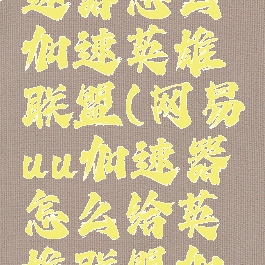 速器怎么
加速英雄
联盟(网易
uu加速器
怎么给英
雄联盟加